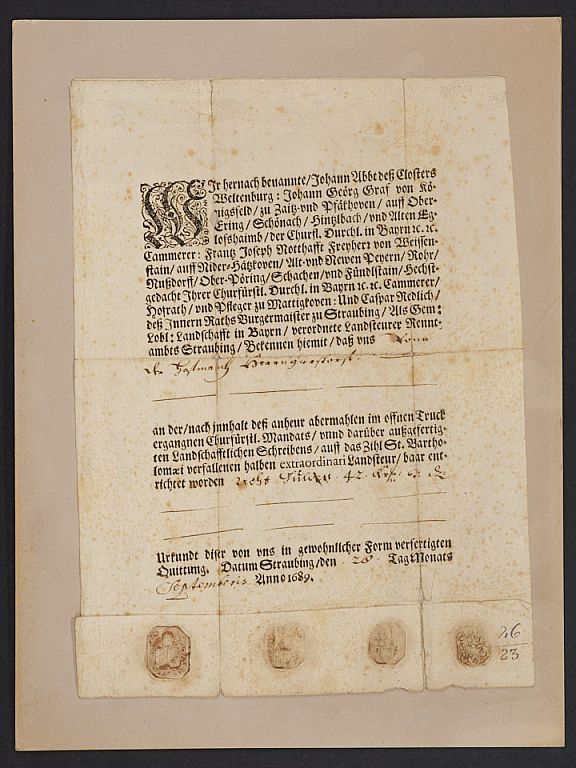 WJr hernach benannte/Johann Abbt deß Closters
Weltenburg: Johann Geörg Graf von Kö-
nigsfeld/zu Zaitz-vnd Pfäkhoven/auff Ober-
Ering/Schönach/Hintzlbach/vnd Alten Eg-
lofshaimb/der Churfl. Durchl. in Bayrn ꝛc. ꝛc.
Cammerer: Frantz Joseph Notthafft Freyherr von Weissen-
stain/auff Nider-Hätzkoven/Alt-vnd Newen Peyern/Rohr/
Nußdorff/Ober-Pöring/Schachen/vnd Fündlstain/Hechst-
gedacht Jhrer Churfürstl. Durchl. in Bayrn ꝛc. ꝛc. Cammerer/
Hofrath/vnd Pfleger zu Mattigkoven: Vnd Caspar Redlich/
deß Jnnern Raths Burgermaister zu Straubing/Als Gem:
Lobl: Landschafft in Bayrn/verordnete Landsteurer Rennt-
ambts Straubing/Bekennen hiemit/daß vns
an der/nach innhalt deß anheur abermahlen im offnen Truck
ergangnen Churfürstl. Mandats/vnnd darüber außgefertig-
ten Landschafftlichen Schreibens/auff das Zihl St. Bartho-
lomæi verfallenen halben extraordinari Landsteur/baar ent-
richtet worden
Vrkundt diser von vns in gewohnlicher Form verfertigten
Quittung. Datum Straubing/den 28 Tag Monats
Septembris Anno 1689.
26
23